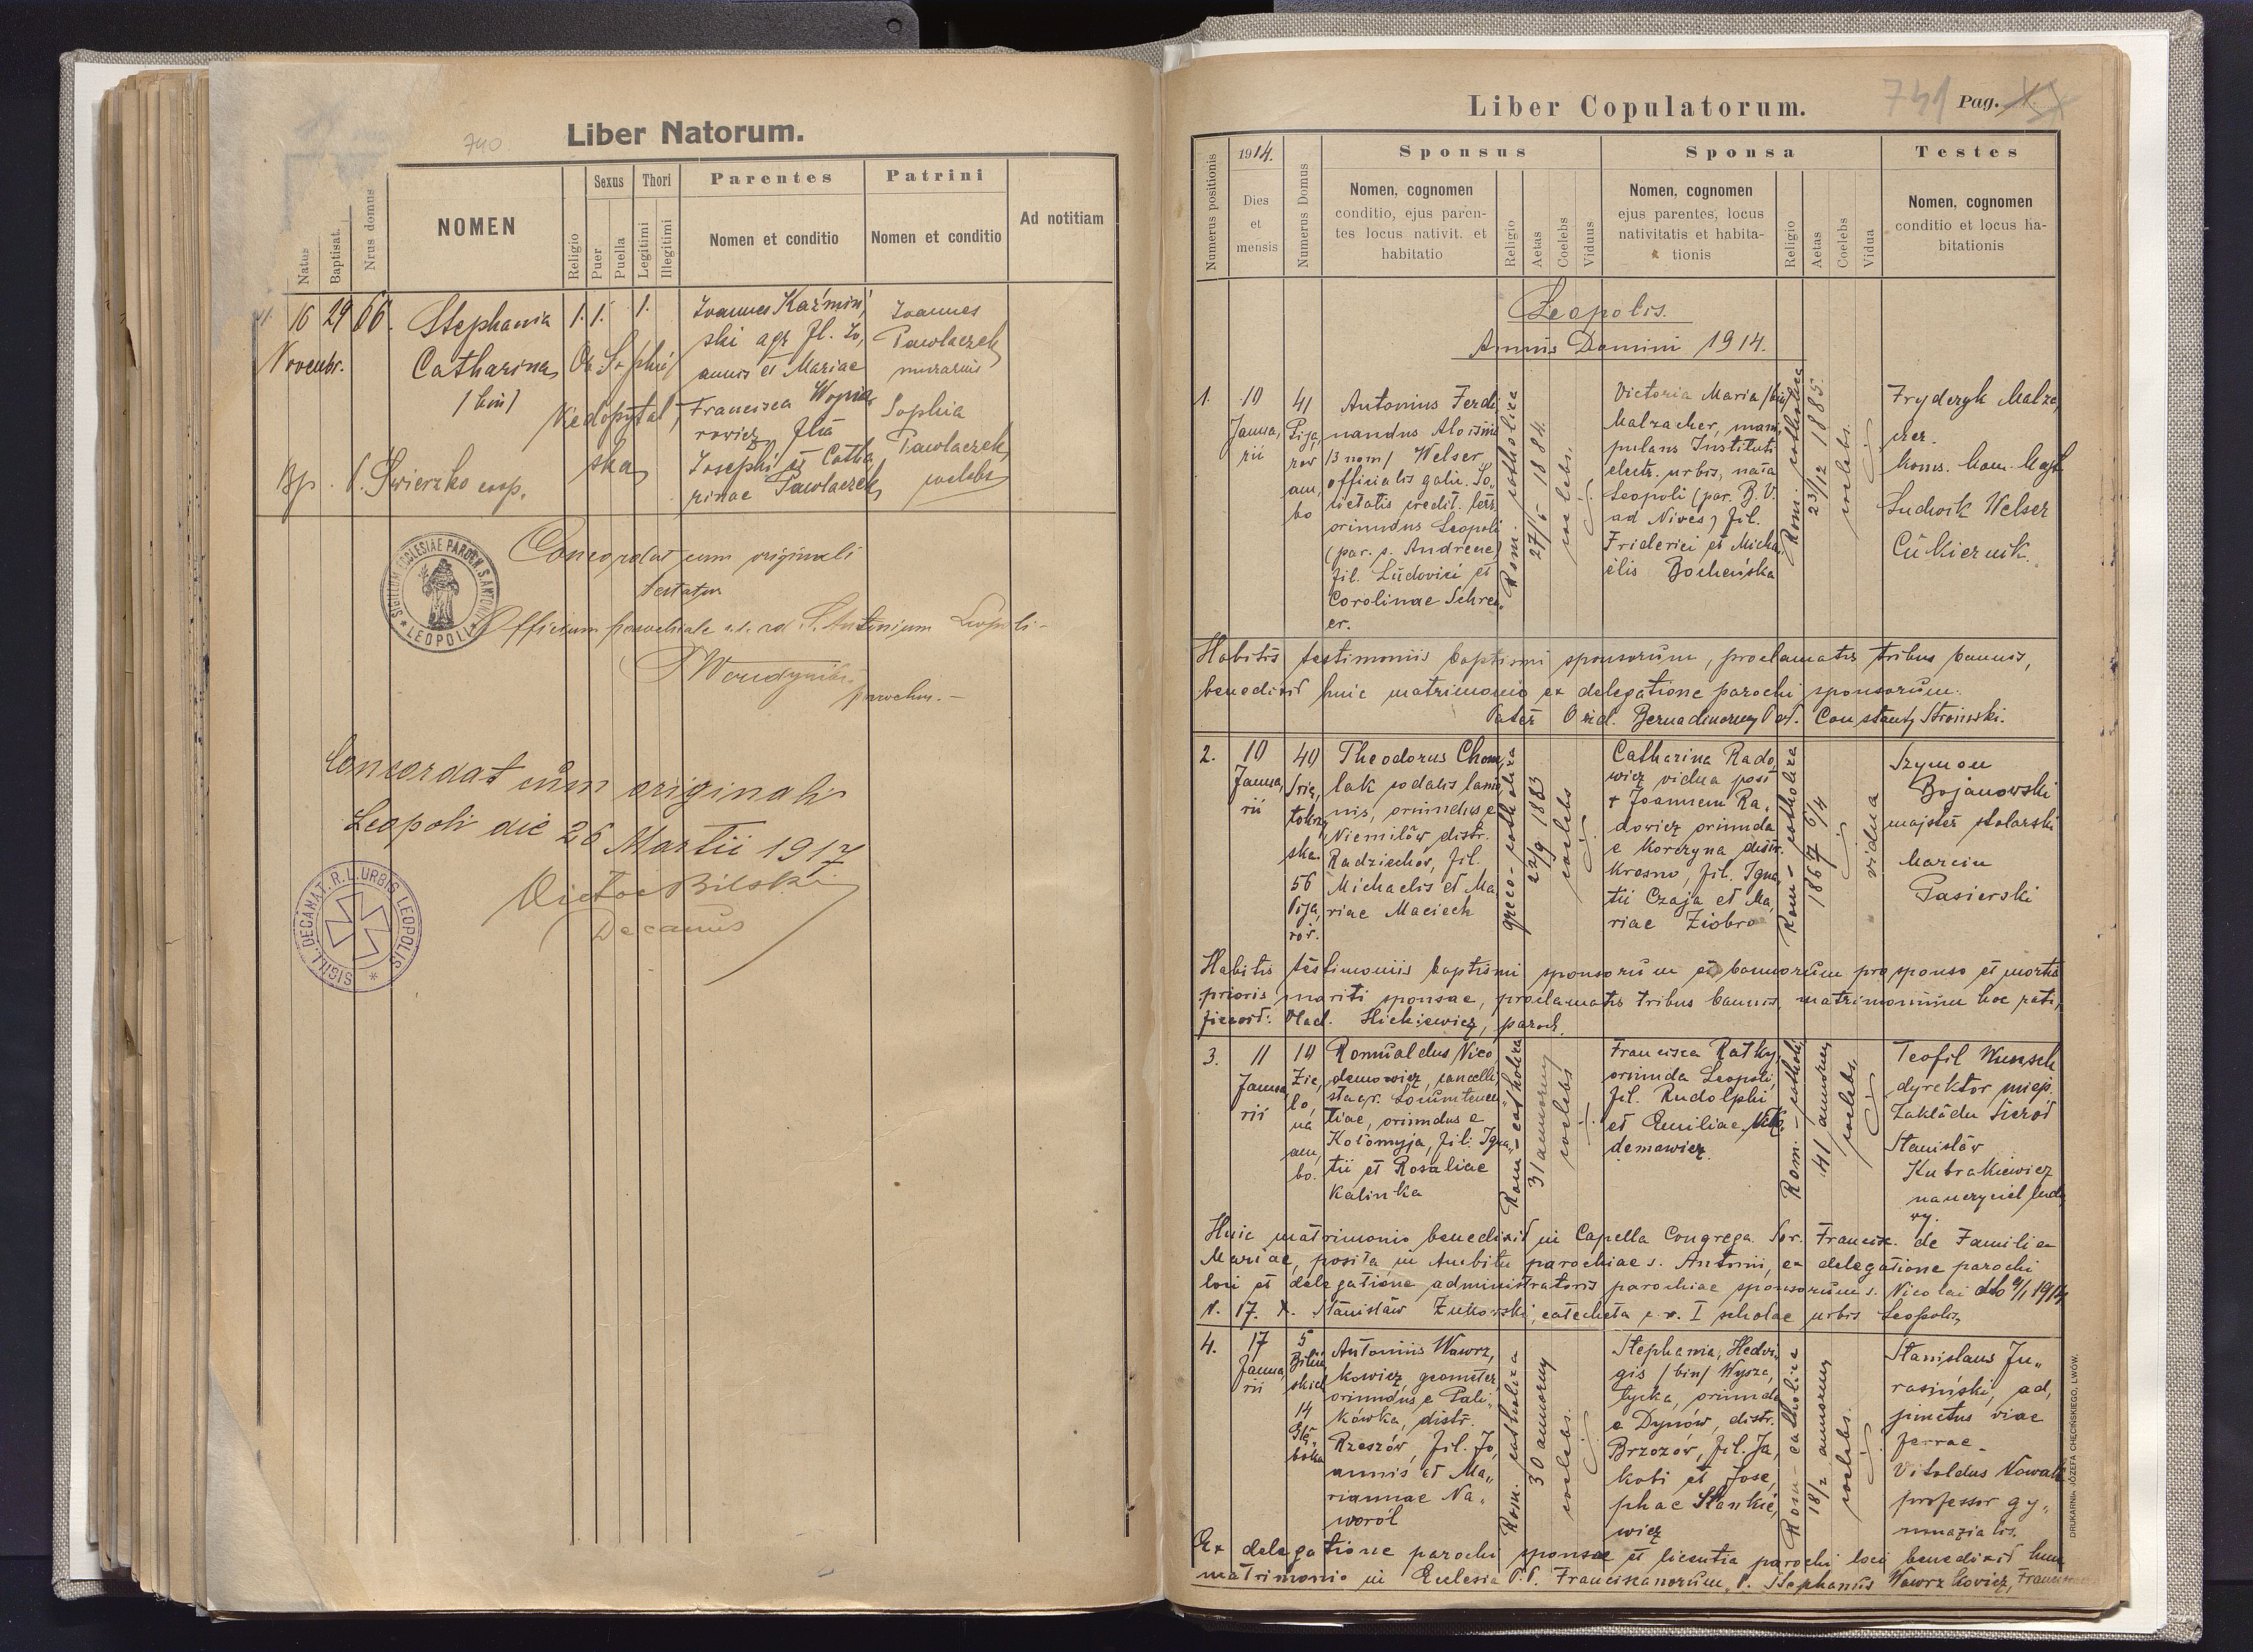 740
Liber Natorum.
Natus
Baptisat.
Nrus domus
NOMEN
Religio
Sexus
Puer
Puella
Thori
Legitimi
Illegitimi
Parentes
Nomen et conditio
Patrini
Nomen et conditio
Ad notitiam
16 29 66.
Novembr.
Stephania
Catharina
/bin/
1. 1. 1.
Ob. Stephii
Niedopytal,
ska
Bp. S. Świerzko coop.
Joannes Kaźmiń,
ski agr. fil. Jo,
annis et Mariae
Francisca Woynia,
rowicz filia
Josephi et Catha,
rinae Pawlaczek
Joannes
Pawlaczek
murarius
Sophia
Pawlaczek,
coelebs
SIGILLUM ECCLESIAE PAROCH. S. ANTONII
* LEOPOLI *
Concordat cum originali
testatur
Officium parochiale r. l. ad S. Antonium Leopoli -
parochus. -
Concordat cum originali
Leopoli die 26 Martii 1917
Victor Bilski
Decanus
SIGILL. DECANAT. R. L. URBIS LEOPOLIS *
741 Pag.
Liber Copulatorum.
Numerus positionis
1914.
Dies
et
mensis
Numerus Domus
Sponsus
Nomen, cognomen
conditio, ejus paren-
tes locus nativit. et
habitatio
Religio
Aetas
Coelebs
Viduus
Sponsa
Nomen, cognomen
ejus parentes, locus
nativitatis et habita-
tionis
Religio
Aetas
Coelebs
Vidua
Testes
Nomen, cognomen
conditio et locus ha-
bitationis
Leopolis.
Annis Domini 1914.
1.
10
Janua,
rii
41
Pija,
rów
am,
bo
Antonius Ferdi,
nandus Aloisius
/3 nom/ Welser
officialis galic. So,
cietatis credit. terr.
oriundus Leopoli
(par. s. Andreae)
fil. Ludovici et
Corolinae Schrei,
er.
Rom. catholica
27/5 1884.
coelebs.
Victoria Maria /bin/
Malzacher, mani,
pulans Instituti
electr. urbis, nata
Leopoli (par. B. V.
ad Nives) fil.
Friderici et Micha,
elis Bocheńska
Rom. catholica
23/12 1885.
coelebs.
Fryderyk Malza,
cher.
koms. kom. Mag.
Ludwik Welser
Cukiernik.
Habitis testimoniis baptismi sponsorum, proclamatis tribus bannis,
benedixit huic matrimonio ex delegatione parochi sponsorum.
Pater Ord. Bernadinorum Pat. Constanty Stroiński.
2.
10
Janua,
rii
40
Świę,
tokrzy,
ska.
56
Pija,
rów.
Theodorus Chom,
lak sodalis lanio,
nis, oriundus e
Niemiłów, distr.
Radziechów, fil.
Michaelis et Ma,
riae Maciech
greco-catholica
22/9 1883
coelebs
Catharina Rado,
wicz vidua post
+ Joannem Ra,
dowicz oriunda
e Korczyna distr.
Krosno, fil. Igna,
tii Czaja et Ma,
riae Ziobro
Rom. catholica
1867 6/4
vidua
Szymon
Bojanowski
majster stolarski
Marcin
Pasierski
Habitis testimoniis baptismi sponsorum et bannorum pro sponso et mortis
prioris mariti sponsae, proclamatis tribus bannis, matrimonium hoc rati,
ficavit: Vlad. Hickiewicz, paroch.
3.
11
Janua,
rii
14
Zie,
lo,
na
am,
bo.
Romualdus Nico,
demowicz, cancelli,
sta gr. Locumtenen,
tiae, oriundus e
Kołomyja, fil. Igna,
tii et Rosaliae
Kalinka
Rom-catholica
31 annorum
coelebs
Francisca Ratky
oriunda Leopoli,
fil. Rudolphi
et Emiliae Niko,
demowicz.
Rom. - cathol.
41 annorum
coelebs.
Teofil Wunsch
dyrektor miejs.
Zakładu Sierot
Stanisław
Kubrakiewicz
nauczyciel ludo,
wy.
Huic matrimonio benedixit in Capella Congrega. Sor. Francisc. de Familia
Mariae, posita in Ambitu parochiae s. Antonii, ex delegatione parochi
loci et delegatione administratoris parochiae sponsorum s. Nicolai dto 9/1 1914
N. 17. X. Stanisław Żukowski, catecheta c. r. I scholae urbis Leopolis,
4.
17
Janua,
rii
5
Biliń
skich
14
Głę,
boka
Antonius Wawrz,
kowicz, geometer
oriundus e Pali,
kówka, distr.
Rzeszów, fil. Jo,
annis et Ma,
riannae Na,
woról
Rom. catholica
30 annorum
coelebs.
Stephania, Hedvi,
gis /bin/ Wysza,
tycka, oriunda
e Dynów, distr.
Brzozów, fil. Ja,
kobi et Jose,
phae Stankie,
wicz
Rom-catholica
18 1/2 annorum
coelebs.
Stanislaus Ju,
rasiński, ad,
junctus viae
ferrae.
Vitoldus Nowak
professor gy,
mnazialis.
Ex delegatione parochi sponsae et licentia parochi loci benedixit huic
matrimonio in Ecclesia P.P. Franciscanorum, P. Stephanus Wawrzkowicz, Francisc
DRUKARNIA JÓZEFA CHĘCIŃSKIEGO, LWÓW.